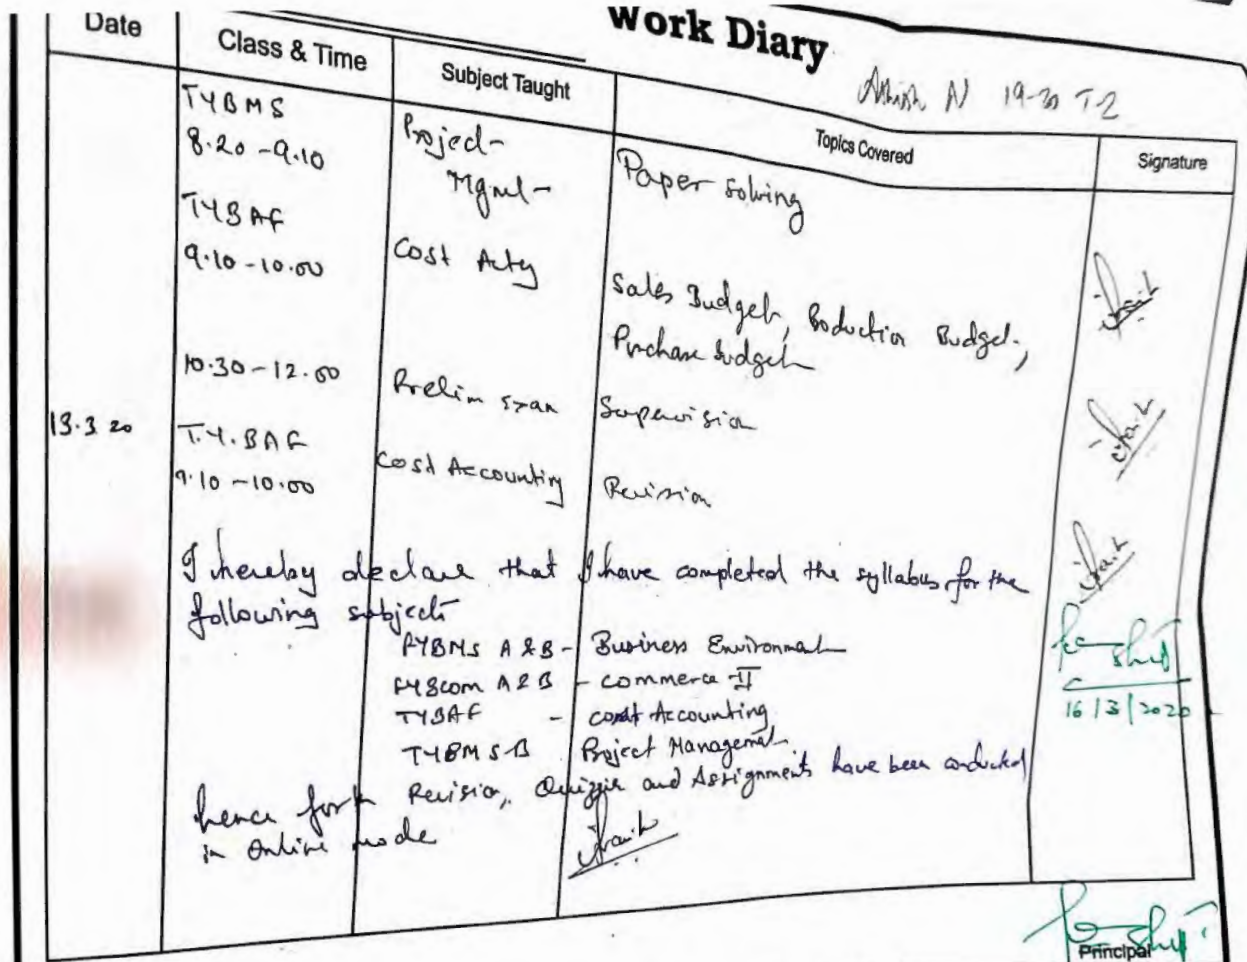 Work Diary
19-20 T-2
Date Class & Time Subject Taught Topics Covered Signature
TYBMS
8.20 - 9.10 Project Mgmt Paper solving
TYBAF
9.10 - 10.00 Cost Actg Sales Budget, Production Budget,
Purchase Budget
10.30 - 12.00 Prelim Exam Supervision
13.3.20 T.Y.BAF
9.10 - 10.00 Cost Accounting Revision
I hereby declare that I have completed the syllabus for the
following subject
FYBMS A & B - Business Environment
FYBcom A & B - commerce II
TYBAF - cost Accounting
TYBMS-B Project Management
hence forth Revision, Quizzie and Assignments have been conducted
in Online mode
16/3/2020
Principal